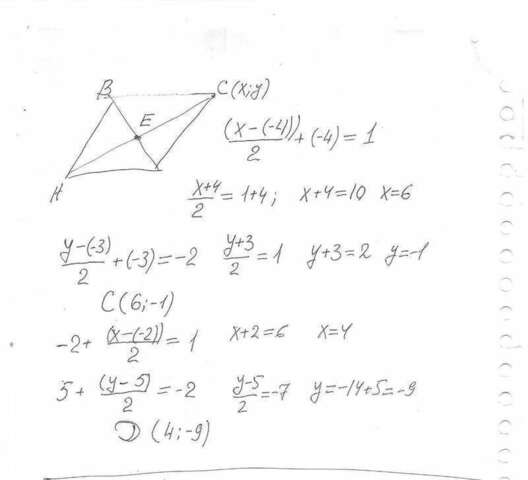 B C (x;y)
E
A
(x-(-4))/2 + (-4) = 1
x+4/2 = 1+4; x+4=10 x=6
y-(-3)/2 + (-3) = -2 y+3/2 = 1 y+3=2 y=-1
C(6;-1)
-2 + (x-(-2))/2 = 1 x+2=6 x=4
5 + (y-5)/2 = -2 y-5/2 = -7 y=-14+5=-9
D (4;-9)